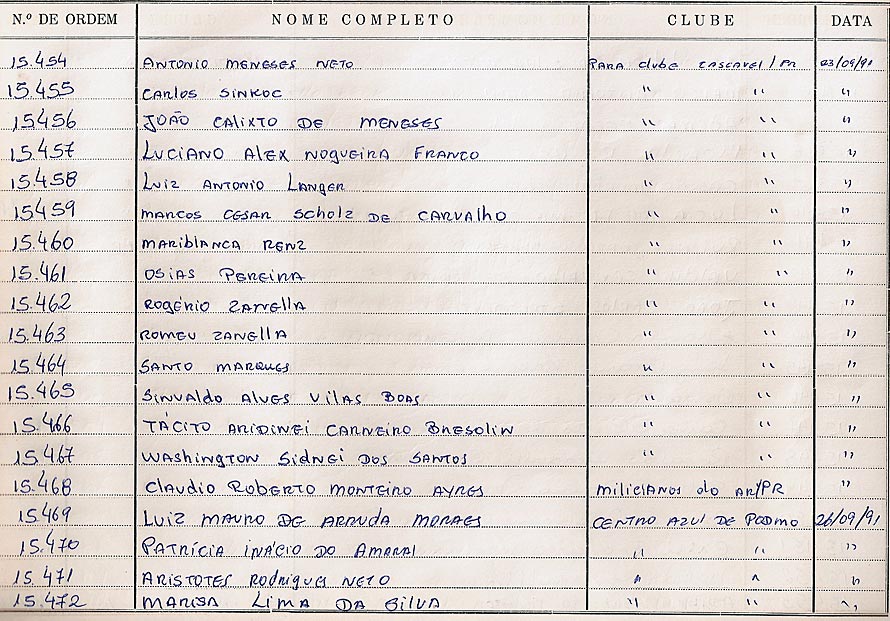 N.º DE ORDEM NOME COMPLETO CLUBE DATA
15.454 ANTONIO MENESES NETO PARA clube CASCAVEL/PR 03/09/91
15.455 CARLOS SINKOC " " "
15456 JOÃO CALIXTO DE MENESES " " "
15.457 LUCIANO ALEX NOGUEIRA FRANCO " " "
15.458 LUIZ ANTONIO LANGER " " "
15459 MARCOS CESAR SCHOLZ DE CARVALHO " " "
15.460 MARIBLANCA RENZ " " "
15.461 OSIAS PEREIRA " " "
15.462 ROGÉRIO ZANELLA " " "
15.463 ROMEU ZANELLA " " "
15.464 SANTO MARQUES " " "
15.465 SINVALDO ALVES VILAS BOAS " " "
15.466 TÁCITO ARIDINEI CARNEIRO BRESOLIN " " "
15.467 WASHINGTON SIDNEI DOS SANTOS " " "
15.468 CLAUDIO ROBERTO MONTEIRO AYRES MILICIANOS do AR/PR "
15.469 LUIZ MAURO DE ARRUDA MORAES CENTRO AZUL DE PQDMO 26/09/91
15.470 PATRÍCIA INÁCIO DO AMARAL " " "
15.471 ARISTOTES RODRIGUES NETO " " "
15.472 MARISA LIMA DA SILVA " " "